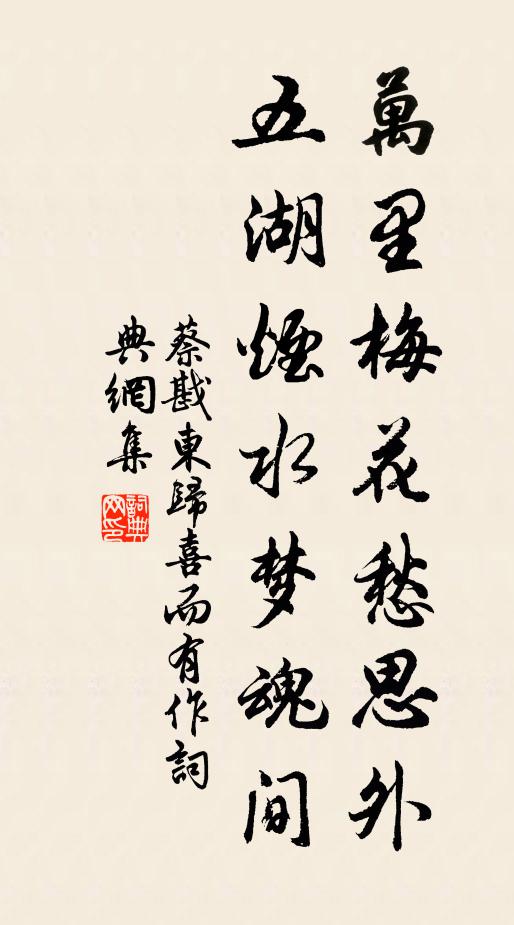 萬里梅花愁思外
五湖煙水梦魂间
蔡戡東歸喜而有作詞
典網集
詞典
网印